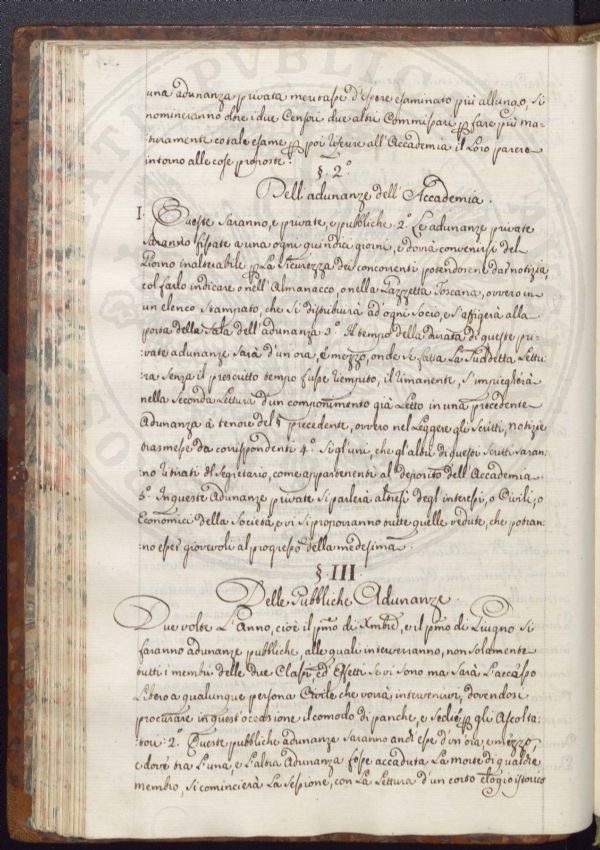 una adunanza privata meritasse d'essere esaminato più allungo, si
nomineranno oltre i due Censori due altri Commissari p fare più ma-
turamente cotale esame p poi riferire all'Accademia il Loro parere
intorno alle cose proposte.
§. 2.°
Dell'adunanze dell'Accademia.
I. Queste saranno, e private, e pubbliche. 2.° Le adunanze private
saranno fissate a una ogni quindici giorni, e dovrà convenirsi del
Giorno inalterabile p La sicurezza dei concorrenti potendosene dar notizia
col farlo indicare o nell'Almanacco, o nella Gazzetta Toscana, ovvero in
un elenco stampato, che si distribuirà ad ogni socio, e s'affigerà alla
porta della sala dell'adunanza 3.° Il tempo della durata di queste pri-
vate adunanze sarà d'un ora, e mezzo, onde se fatta La suddetta Lettu-
ra senza il prescritto tempo fusse riempito, il rimanente, s'impiegherà
nella seconda Lettura d'un componimento già Letto in una precedente
Adunanza à tenore del § precedente, ovvero nel Leggere gli scritti, notizie
trasmesse da corrispondenti 4.° Sì gl'uni, che gl'altri di questi scritti saran-
no ritirati dal Segretario, come appartenenti al deposito dell'Accademia
5.° In queste Adunanze private si parlerà altresì degl'interessi, o Civili, o
Economici della Società, e vi si proporranno tutte quelle vedute, che potran-
no esser giovevoli al progresso della medesima.
§ III.
Delle Pubbliche Adunanze.
Due volte L'anno, cioè il pmo di Xmbre, e il pmo di Giugno si
faranno adunanze pubbliche, alle quali interverranno, non solamente
tutti i membri delle due Classi, ed essetti se vi sono ma sarà L'accesso
Libero a qualunque persona Civile che vorrà intervenirvi, dovendosi
procurare in quest'occasione il comodo di panche, e sedie p gli Ascolta-
tori. 2.° Queste pubbliche adunanze saranno anch'esse d'un'ora, e mezzo,
e dove tra L'una, e L'altra Adunanza fosse accaduta La morte di qualche
membro, si comincierà La sessione, con La Lettura d'un corto elogio istorico